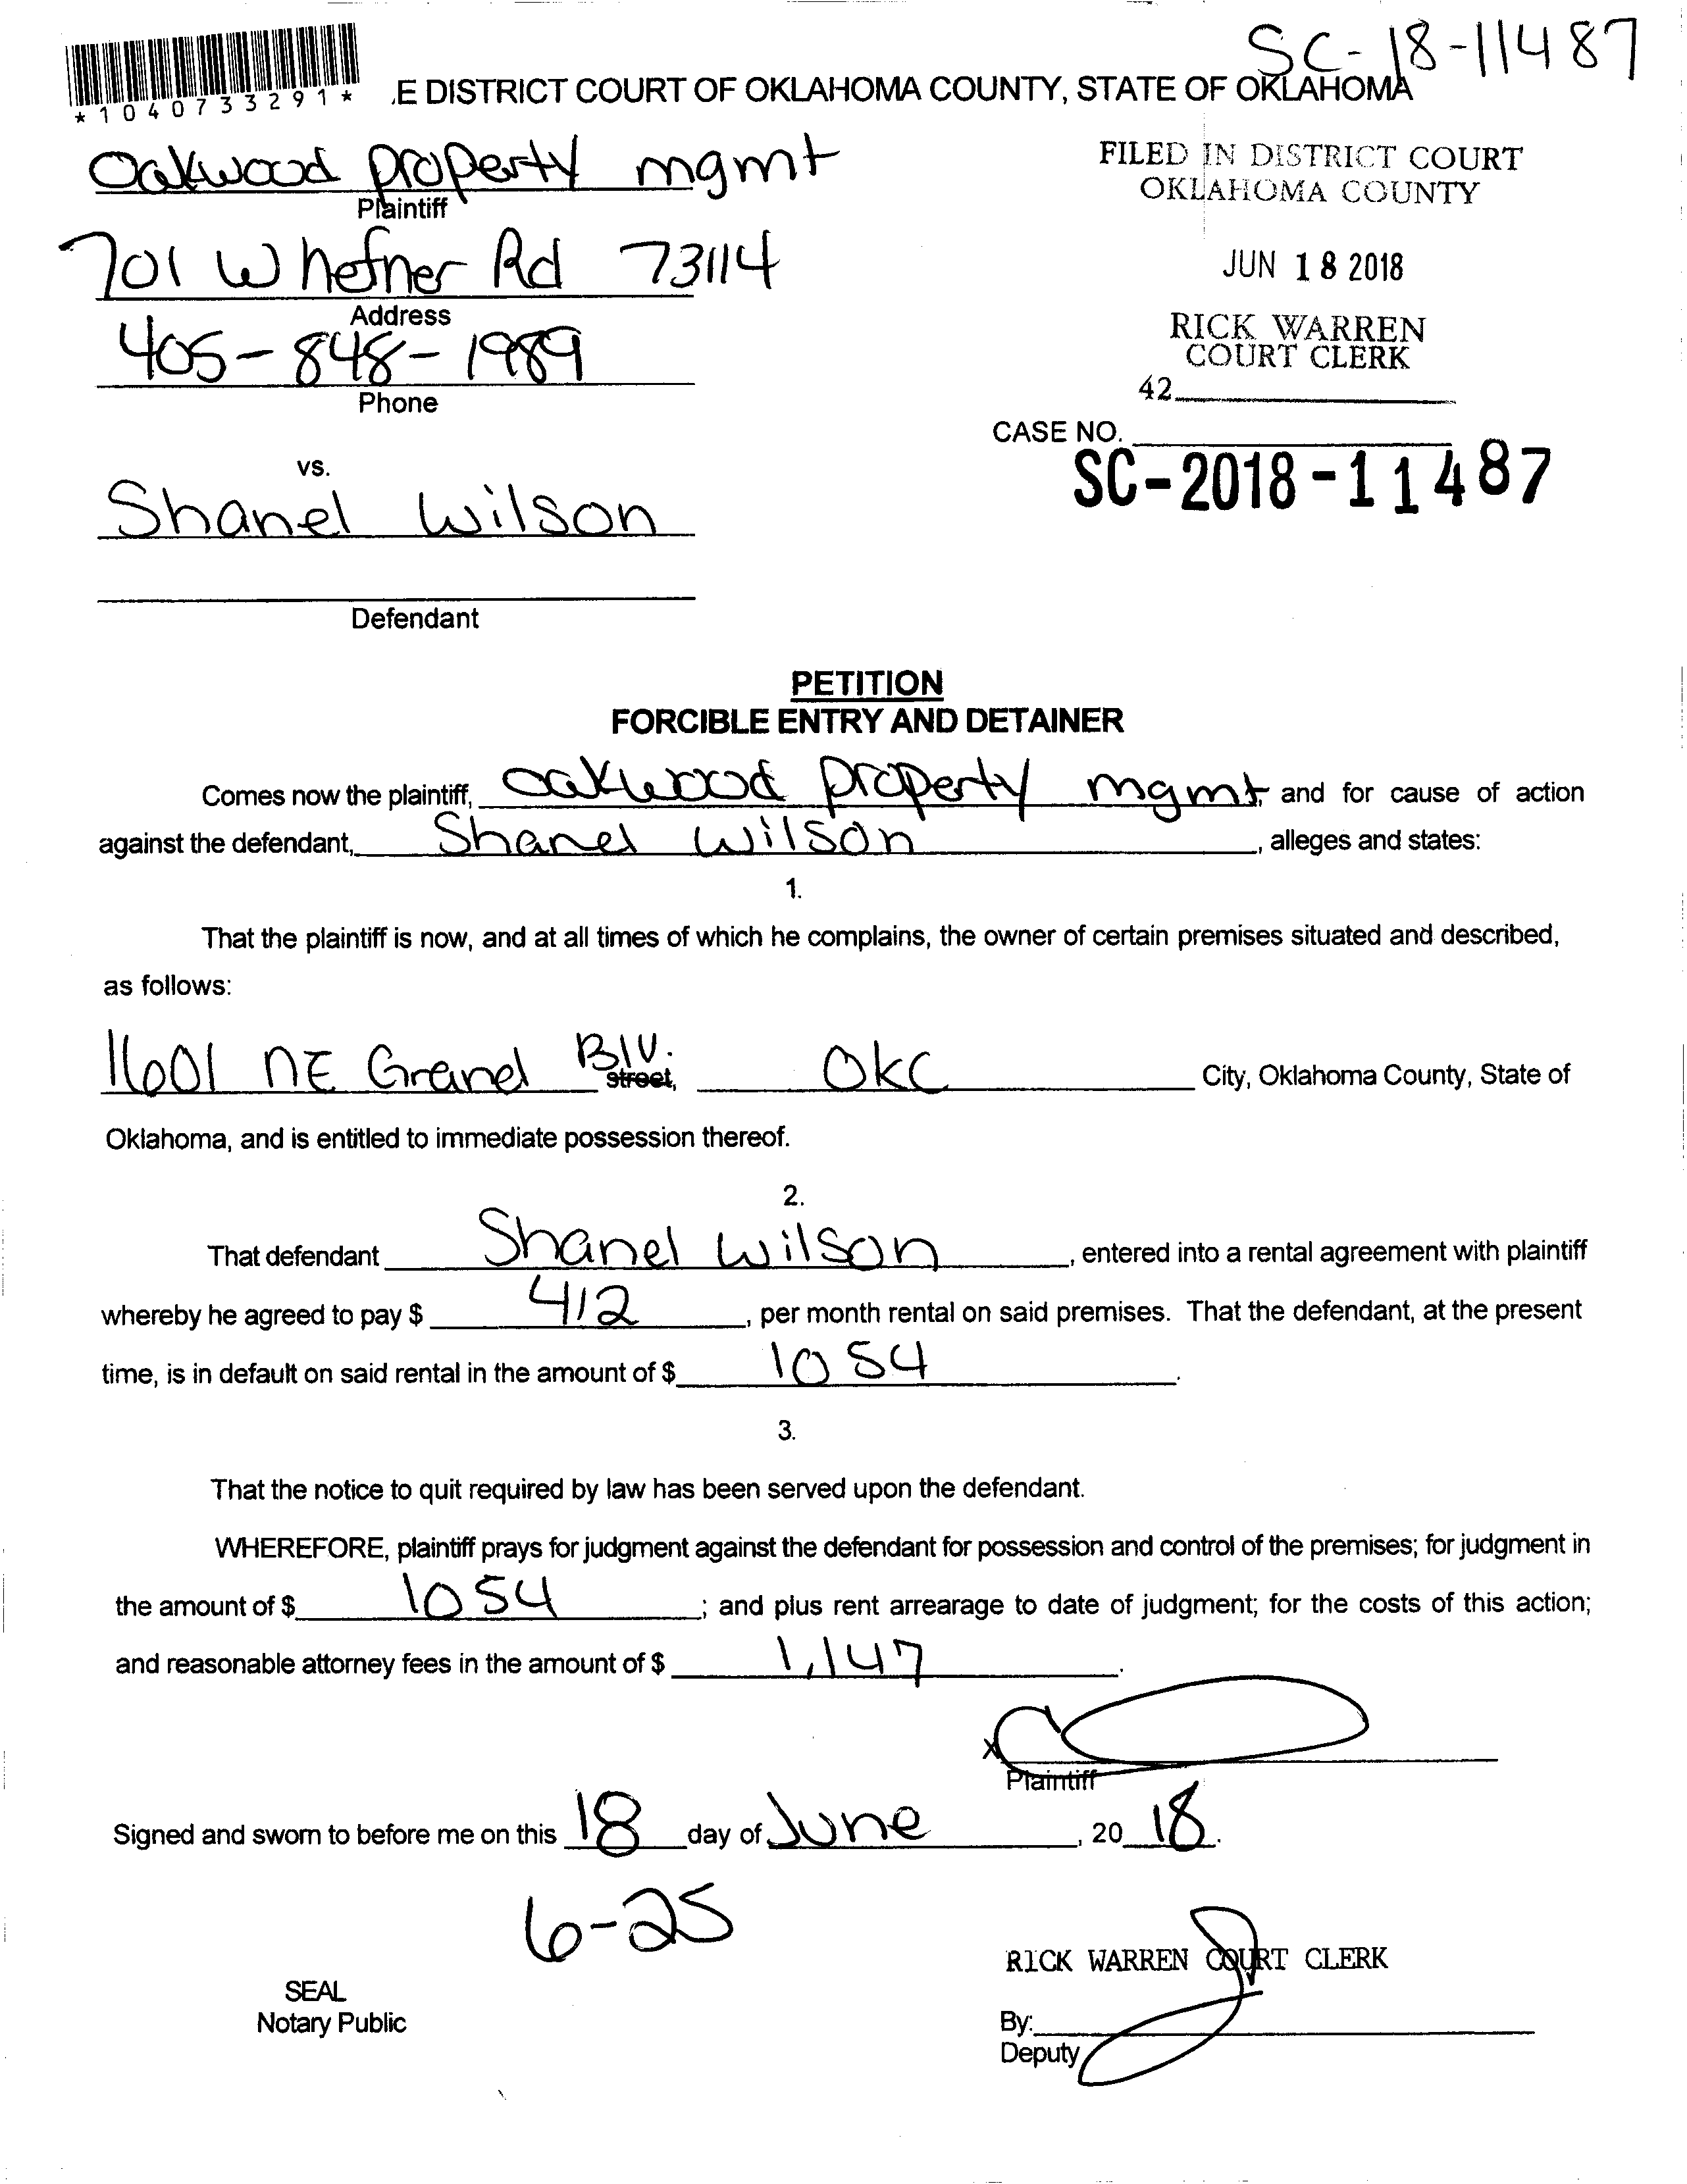 SC-18-11487
*1040733291*
.E DISTRICT COURT OF OKLAHOMA COUNTY, STATE OF OKLAHOMA
Oakwood property mgmt
Plaintiff
FILED IN DISTRICT COURT
OKLAHOMA COUNTY
701 W hefner Rd 73114
Address
JUN 18 2018
405-848-1989
Phone
RICK WARREN
COURT CLERK
42
CASE NO.
SC-2018-11487
vs.
Shanel Wilson
Defendant
PETITION
FORCIBLE ENTRY AND DETAINER
Comes now the plaintiff, oakwood property mgmt, and for cause of action
against the defendant, Shanel Wilson, alleges and states:
1.
That the plaintiff is now, and at all times of which he complains, the owner of certain premises situated and described,
as follows:
1601 NE Grand Blv. Street, OKC City, Oklahoma County, State of
Oklahoma, and is entitled to immediate possession thereof.
2.
That defendant Shanel Wilson, entered into a rental agreement with plaintiff
whereby he agreed to pay $ 412, per month rental on said premises. That the defendant, at the present
time, is in default on said rental in the amount of $ 1054.
3.
That the notice to quit required by law has been served upon the defendant.
WHEREFORE, plaintiff prays for judgment against the defendant for possession and control of the premises; for judgment in
the amount of $ 1054; and plus rent arrearage to date of judgment; for the costs of this action;
and reasonable attorney fees in the amount of $ 1,147.
x
Plaintiff
Signed and sworn to before me on this 18 day of June, 20 18.
6-25
RICK WARREN COURT CLERK
SEAL
Notary Public
By:
Deputy